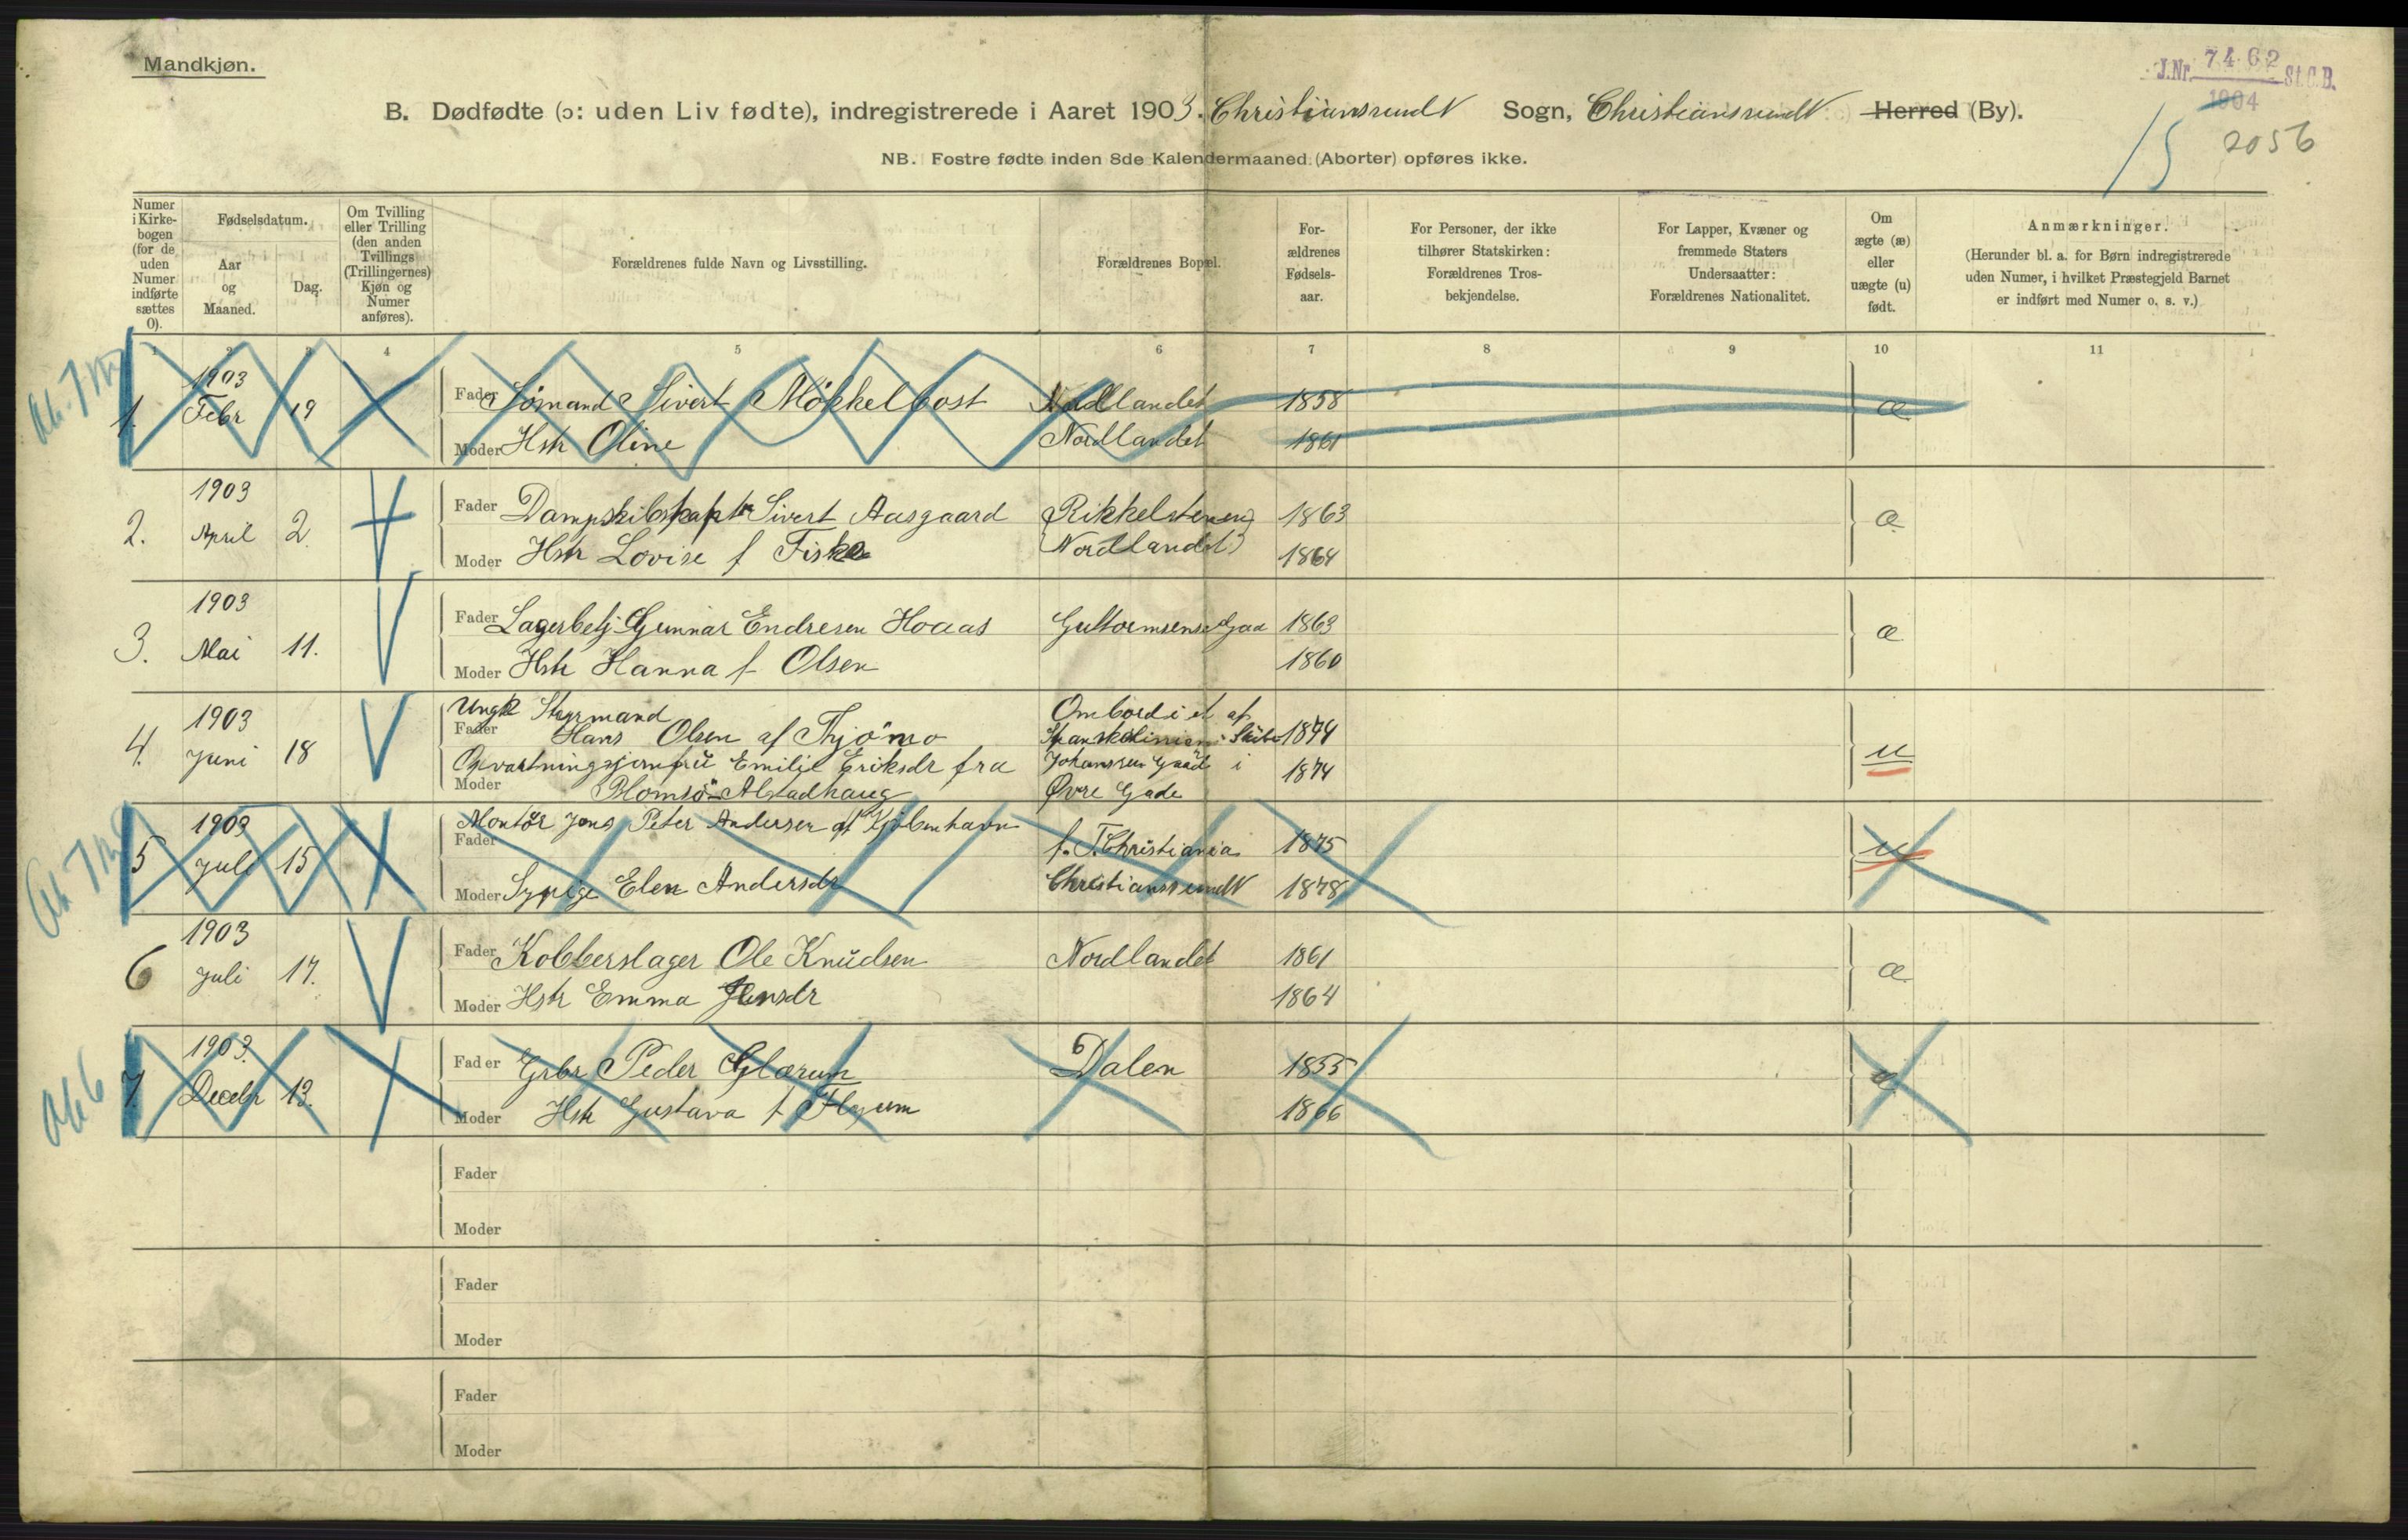 Mandkjøn.
J.Nr. 7462 St.C.B.
1904
B. Dødfødte (ɔ: uden Liv fødte), indregistrerede i Aaret 1903. Christianssund N Sogn, Christianssund N Herred (By).
15 2056
NB. Fostre fødte inden 8de Kalendermaaned (Aborter) opføres ikke.
Numer i Kirkebogen (for de uden Numer indførte sættes 0).
Fødselsdatum.
Aar og Maaned.
Dag.
Om Tvilling eller Trilling (den anden Tvillings (Trillingernes) Kjøn og Numer anføres).
Forældrenes fulde Navn og Livsstilling.
Forældrenes Bopæl.
Forældrenes Fødselsaar.
For Personer, der ikke tilhører Statskirken: Forældrenes Trosbekjendelse.
For Lapper, Kvæner og fremmede Staters Undersaatter: Forældrenes Nationalitet.
Om ægte (æ) eller uægte (u) født.
Anmærkninger.
(Herunder bl. a. for Børn indregistrerede uden Numer, i hvilket Præstegjeld Barnet er indført med Numer o. s. v.)
1 2 3 4 5 6 7 8 9 10 11
1. 1903 Febr 19 Fader Sømand Sivert Møkkelbost Nordlandet 1858 æ
Moder Hstr Oline Nordlandet 1861
2. 1903 April 2. Fader Dampskibskapt Sivert Aasgaard Rikkelstenen 1863 æ
Moder Hstr Lovise f Fiske (Nordlandet) 1864
3. 1903 Mai 11. Fader Lagerbetj Gunnar Endresen Hoaas Guttormsens Gaa 1863 æ
Moder Hstr Hanna f Olsen 1860
4. 1903 Juni 18 Ungk Styrmand Ombord i et af
Fader Hans Olsen af Thjømø Skibe 1874 u
Opvartningsjomfru Emilie Eriksdr fra Johansen Gaard i 1874
Moder Blomsø Alstadhaug Øvre Gade
5 1903 Juli 15 Montør Jens Peter Andersen af Kjøbenhavn
Fader f. T. Christiania 1875 u
Moder Sypige Elen Andersdr Christianssund N 1878
6 1903 Juli 17. Fader Kobberslager Ole Knudsen Nordlandet 1861 æ
Moder Hstr Emma Jensdr 1864
7. 1903. Decbr 13. Fader Grbr Peder Glærum Dalen 1855 æ
Moder Hstr Gustava f Flyum 1866
Fader
Moder
Fader
Moder
Fader
Moder